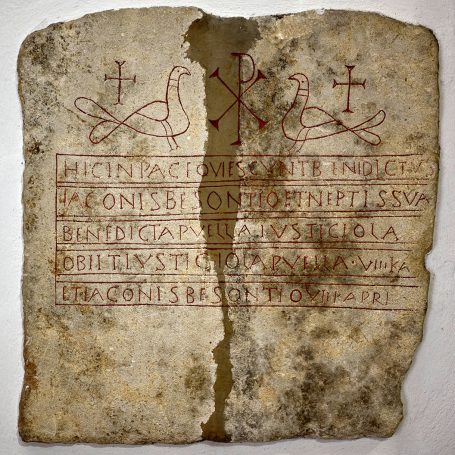 HIC IN PACE QVIESCVNT BENIDICTVS
IACONIS BESONTIO ET NEPTIS SVA
BENEDICTA PVELLA IVSTICIOLA
OBIIT IVSTICIOLA PVELLA · VIII · KA
ET IACONIS BESONTIO VIII KA PRI